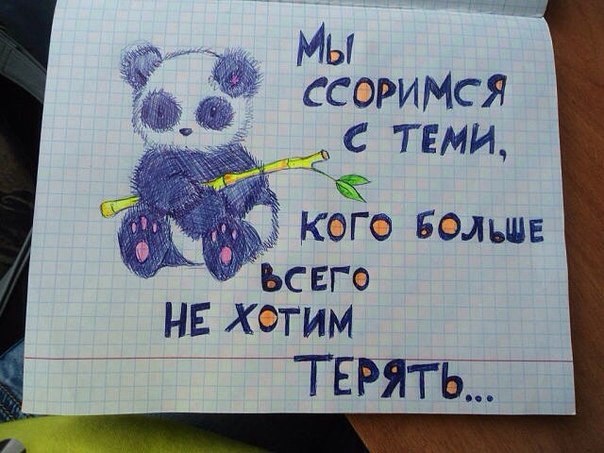 Мы
ссоримся
с теми,
кого больше
всего
не хотим
терять...